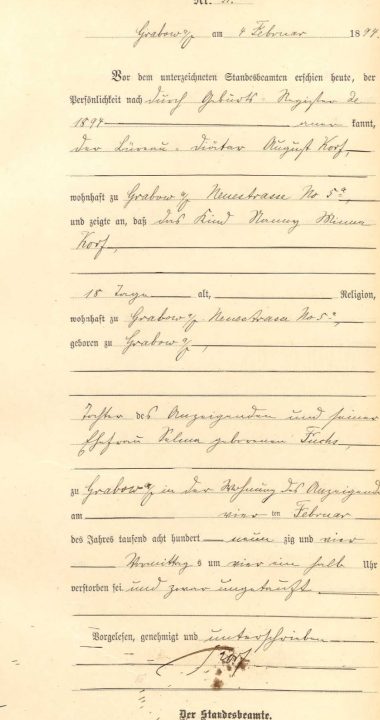 Nr.
Grabow a/O am 4 Februar 1894.
Vor dem unterzeichneten Standesbeamten erschien heute, der
Persönlichkeit nach durch Geburts-Register de
1894 aner kannt,
der Büreau-Diätar August Korf,
wohnhaft zu Grabow a/O Neuestrasse No 5a,
und zeigte an, daß das Kind Nanny Minna
Korf,
18 Tage alt, Religion,
wohnhaft zu Grabow a/O Neuestrasse No 5a,
geboren zu Grabow a/O,
Tochter des Anzeigenden und seiner
Ehefrau Selma geborenen Fuchs,
zu Grabow a/O in der Wohnung des Anzeigend
am vier ten Februar
des Jahres tausend acht hundert neun zig und vier
Vormittag s um vier ein halb Uhr
verstorben sei und zwar ungetauft.
Vorgelesen, genehmigt und unterschrieben
Korf
Der Standesbeamte.